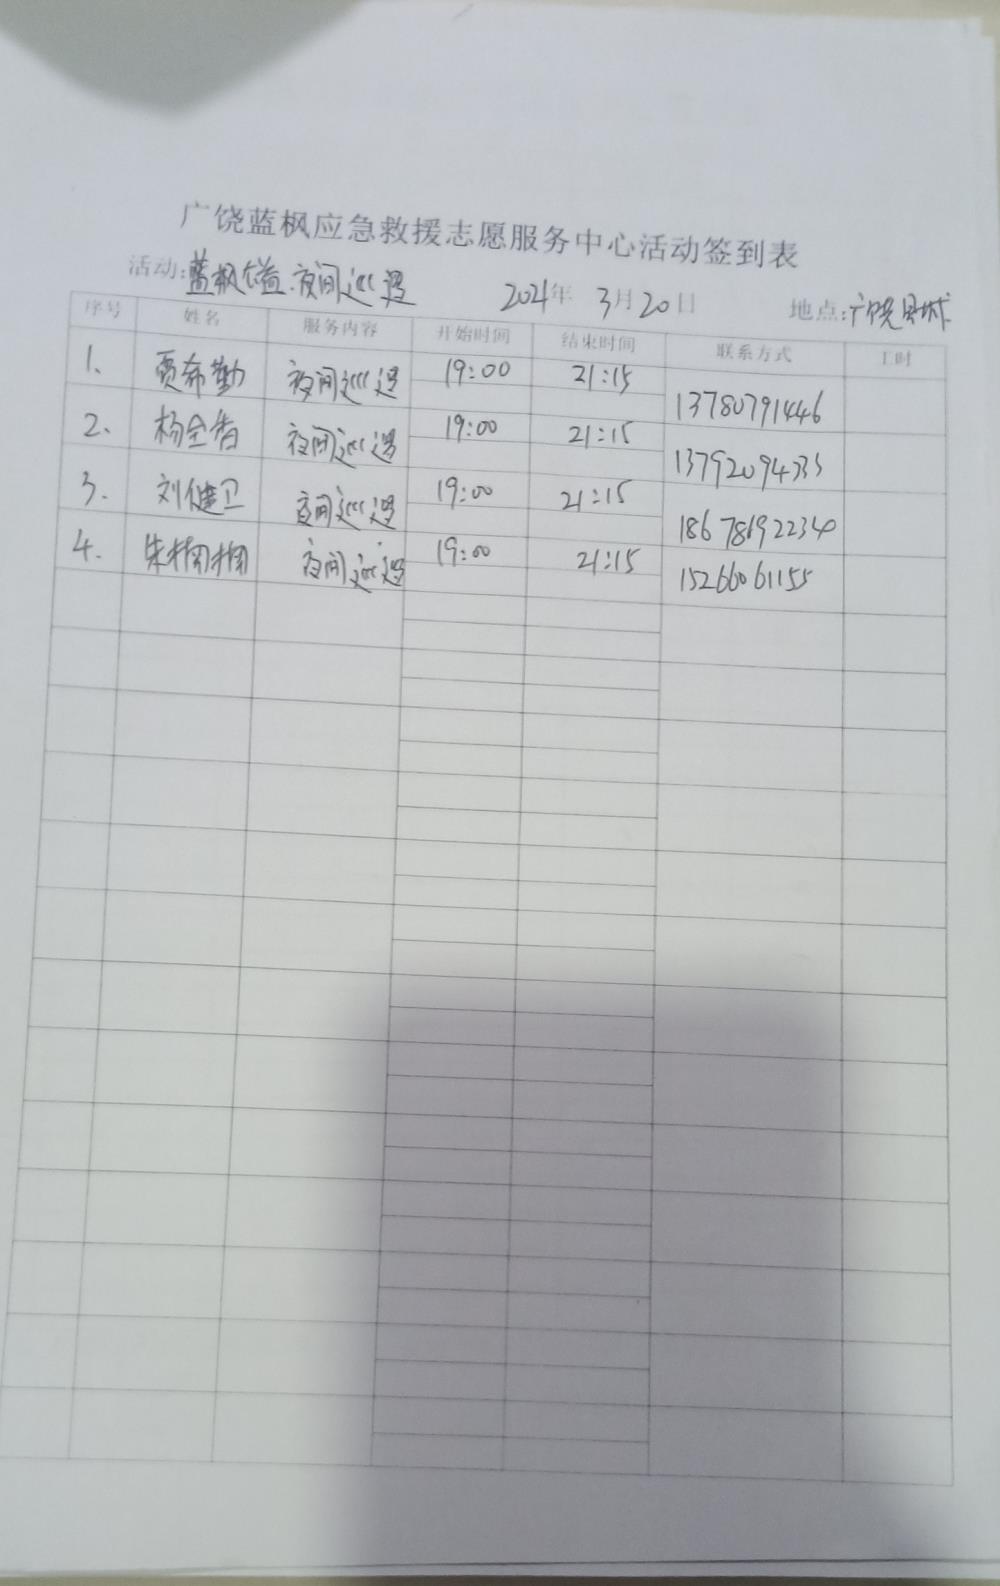 广饶蓝枫应急救援志愿服务中心活动签到表
活动:蓝枫公益.夜间巡逻 2021年 3月20日 地点:广饶县城
序号 姓名 服务内容 开始时间 结束时间 联系方式 工时
1、 贾希勤 夜间巡逻 19:00 21:15 13780791446
2、 杨全香 夜间巡逻 19:00 21:15 13792094333
3、 刘健卫 夜间巡逻 19:00 21:15 18678692234
4、 朱楠楠 夜间巡逻 19:00 21:15 15266061155